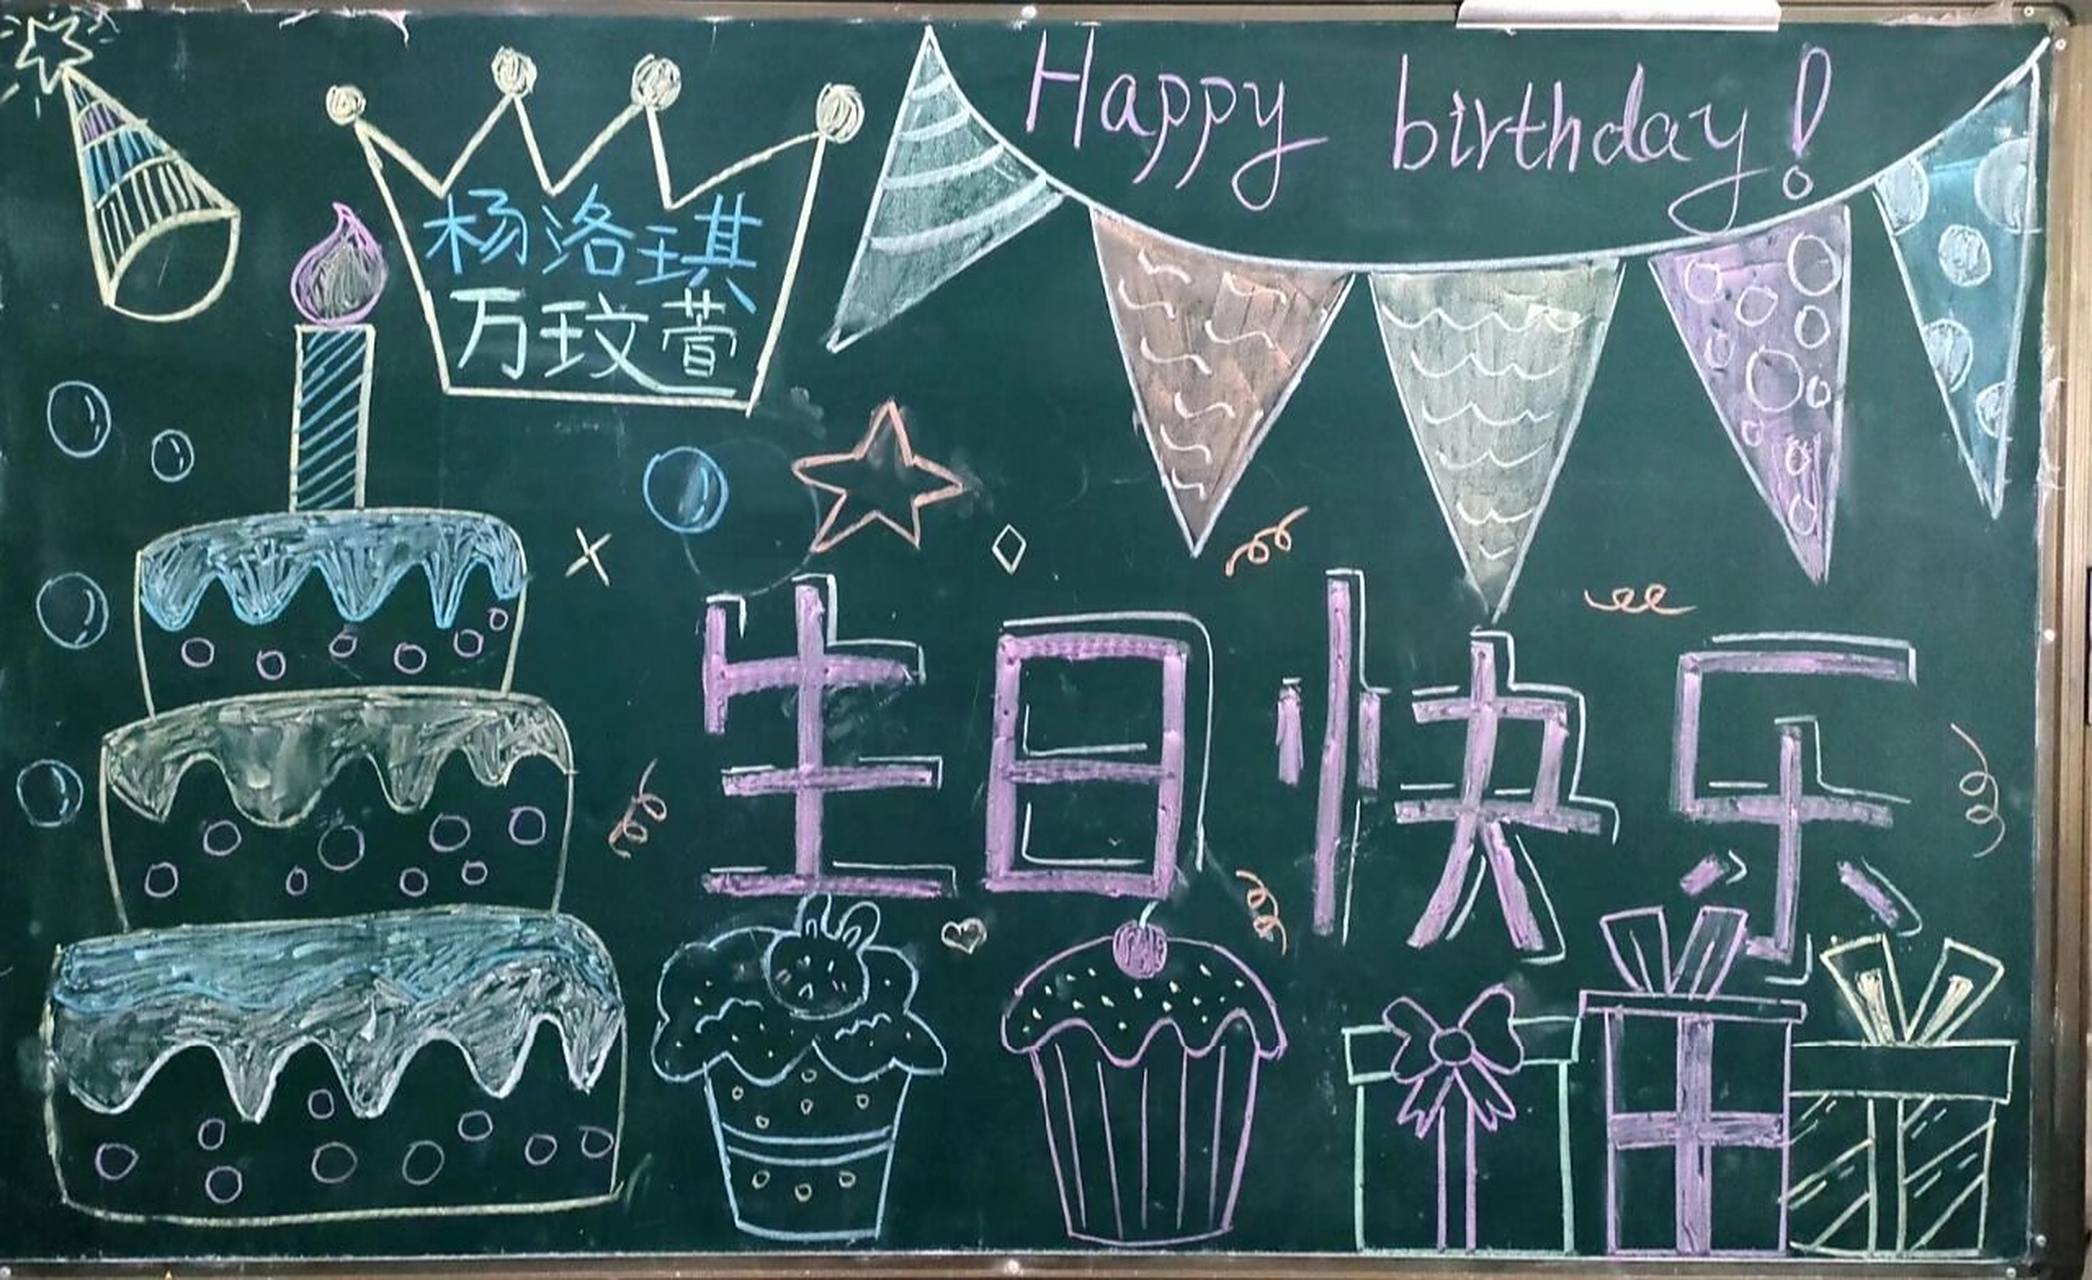 Happy birthday!
杨洛琪
万玟萱
生日快乐